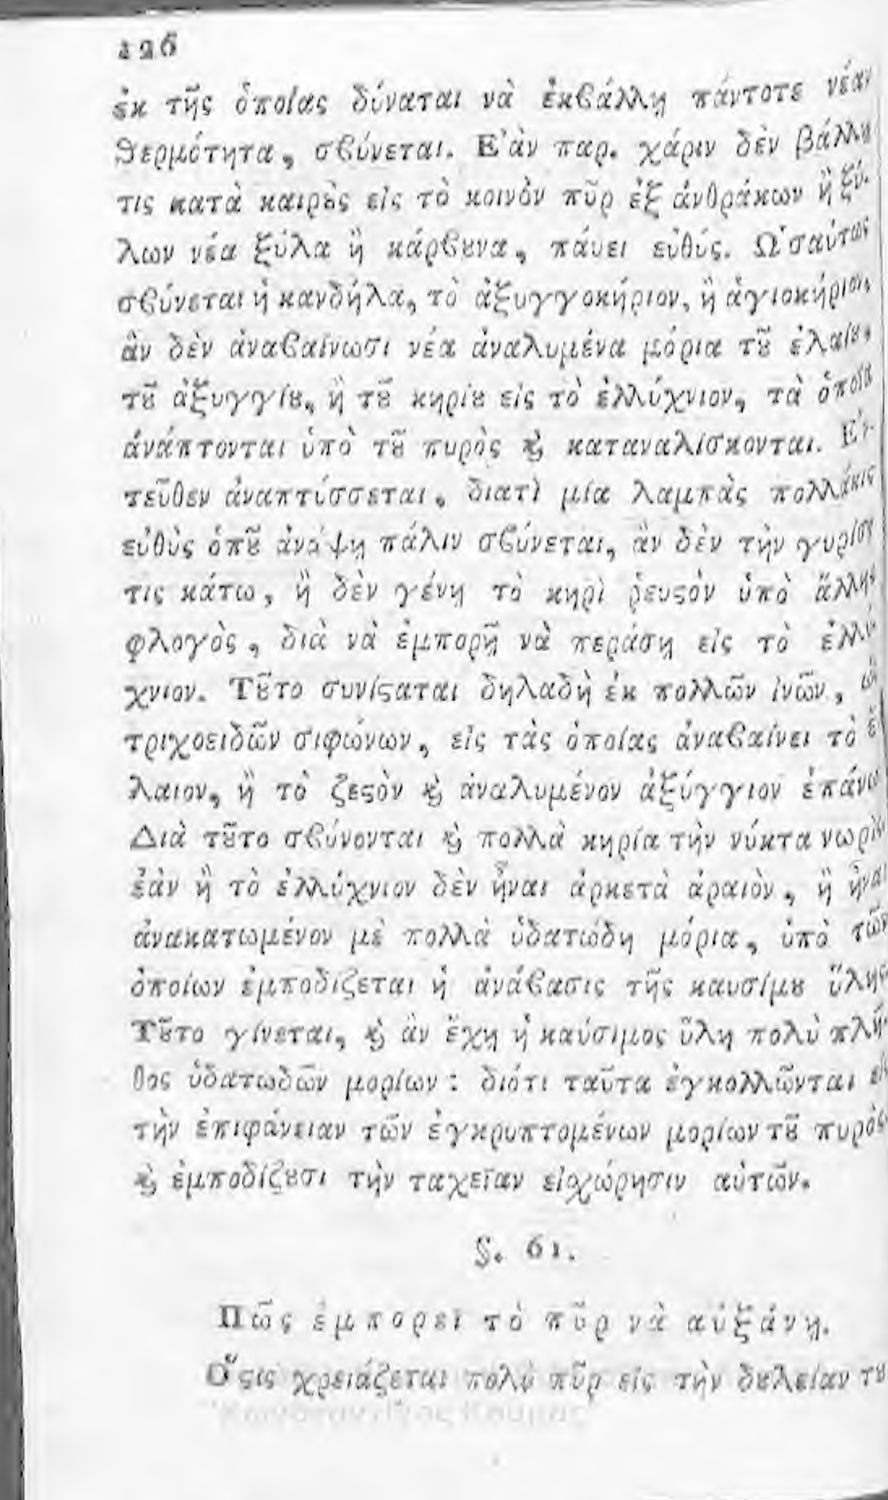 126
ἐκ τῆς ὁποίας δύναται νὰ ἐκβάλλῃ πάντοτε νέαν
θερμότητα, σβύνεται. Ἐὰν παρ. χάριν δὲν βάλλῃ
τις κατὰ καιρȣ̀ς εἰς τὸ κοινὸν πῦρ ἐξ ἀνθράκων ἢ ξύ-
λων νέα ξύλα ἢ κάρβȣνα, παύει εὐθύς. Ὡσαύτως
σβύνεται ἡ κανδήλα, τὸ ἀξυγγοκήριον, ἢ ἁγιοκήριον,
ἂν δὲν ἀναβαίνωσι νέα ἀναλυμένα μόρια τȣ͂ ἐλαίȣ,
τȣ͂ ἀξυγγίȣ, ἢ τȣ͂ κηρίȣ εἰς τὸ ἐλλύχνιον, τὰ ὁποῖα
ἀνάπτονται ὑπὸ τȣ͂ πυρὸς ϗ̀ καταναλίσκονται. Ἐν-
τεῦθεν ἀναπτύσσεται, διατὶ μία λαμπὰς πολλάκις
εὐθὺς ὁπȣ͂ ἀνάψῃ πάλιν σβύνεται, ἂν δὲν τὴν γυρίσῃ
τις κάτω, ἢ δὲν γένῃ τὸ κηρὶ ῥευϛὸν ὑπὸ ἄλλης
φλογὸς, διὰ νὰ ἐμπορῇ νὰ περάσῃ εἰς τὸ ἐλλύ-
χνιον. Τȣ͂το συνίϛαται δηλαδὴ ἐκ πολλῶν ἰνῶν, ὡς
τριχοειδῶν σιφώνων, εἰς τὰς ὁποίας ἀναβαίνει τὸ ἔ-
λαιον, ἢ τὸ ζεϛὸν ϗ̀ ἀναλυμένον ἀξύγγιον ἐπάνω
Διὰ τȣ͂το σβύνονται ϗ̀ πολλὰ κηρία τὴν νύκτα νωρὶς
ἐὰν ἢ τὸ ἐλλύχνιον δὲν ἦναι ἀρκετὰ ἀραιὸν, ἢ ἦναι
ἀνακατωμένον μὲ πολλὰ ὑδατώδη μόρια, ὑπὸ τῶν
ὁποίων ἐμποδίζεται ἡ ἀνάβασις τῆς καυσίμȣ ὕλης
Τȣ͂το γίνεται, ϗ̀ ἂν ἔχῃ ἡ καύσιμος ὕλη πολὺ πλῆ-
θος ὑδατωδῶν μορίων: διότι ταῦτα ἐγκολλῶνται εἰς
τὴν ἐπιφάνειαν τῶν ἐγκρυπτομένων μορίων τȣ͂ πυρὸς
ϗ̀ ἐμποδίζȣσι τὴν ταχεῖαν εἰσχώρησιν αὐτῶν.
§. 61.
Πῶς ἐμπορεῖ τὸ πῦρ νὰ αὐξάνῃ.
Ὅϛις χρειάζεται πολὺ πῦρ εἰς τὴν δȣλείαν τȣ